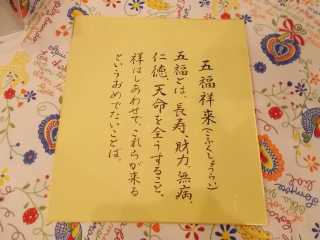 五福祥来(ごふくしょうらい)
五福とは、長寿、財力、無病、
仁徳、天命を全うすること、
祥はしあわせで、これらが来る
というおめでたいことば。